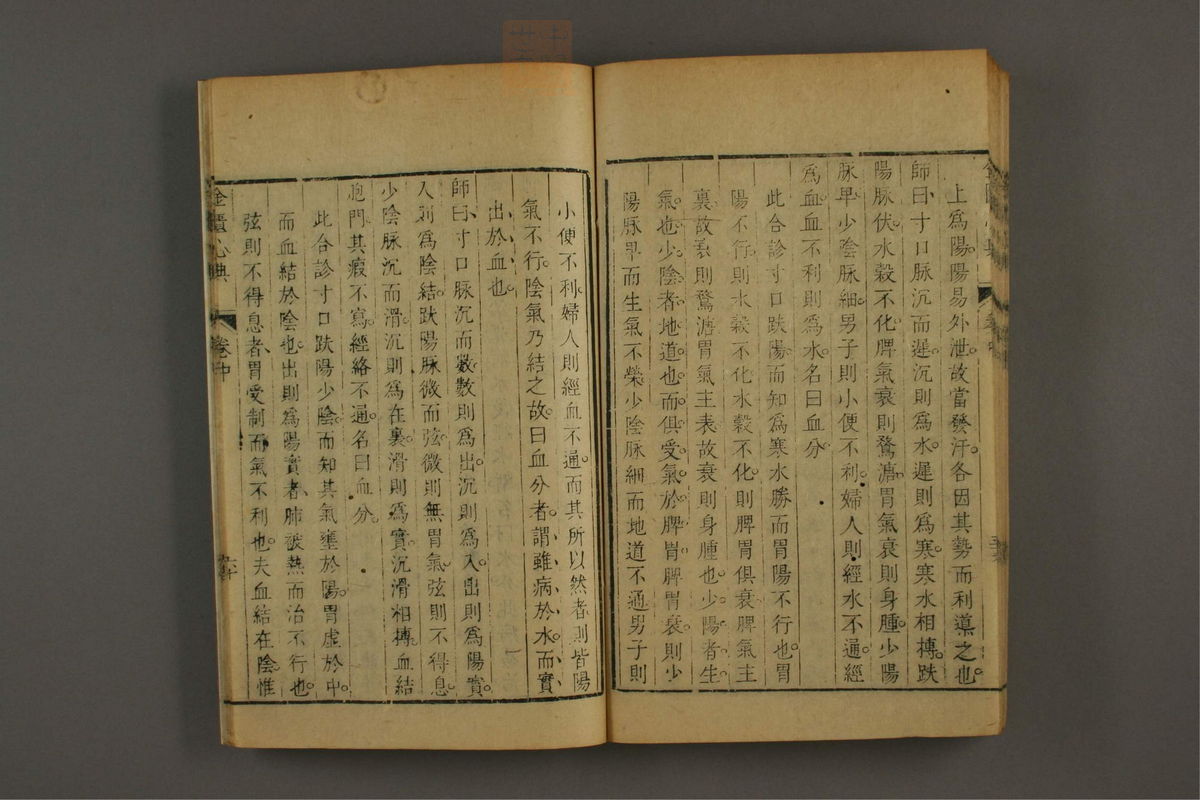 上為陽陽易外泄故當發汗各因其勢而利導之也
師曰寸口脉沉而遲沉則為水遲則為寒寒水相搏趺
陽脉伏水穀不化脾氣衰則鶩溏胃氣衰則身腫少陽
脉卑少陰脉細男子則小便不利婦人則經水不通經
為血血不利則為水名曰血分
此合診寸口趺陽而知為寒水勝而胃陽不行也胃
陽不行則水穀不化水穀不化則脾胃俱衰脾氣主
裏故衰則鶩溏胃氣主表故衰則身腫也少陽者生
氣也少陰者地道也而俱受氣於脾胃脾胃衰則少
陽脉卑而生氣不榮少陰脉細而地道不通男子則
小便不利婦人則經血不通而其所以然者則皆陽
氣不行陰氣乃結之故曰血分者謂雖病於水而實
出於血也
師曰寸口脉沉而數數則為出沉則為入出則為陽實
入則為陰結趺陽脉微而弦微則無胃氣弦則不得息
少陰脉沉而滑沉則為在裏滑則為實沉滑相搏血結
胞門其瘕不瀉經絡不通名曰血分
此合診寸口趺陽少陰而知其氣壅於陽胃虛於中
而血結於陰也出則為陽實者肺被熱而治不行也
弦則不得息者胃受制而氣不利也夫血結在陰惟
金匱心典
卷中